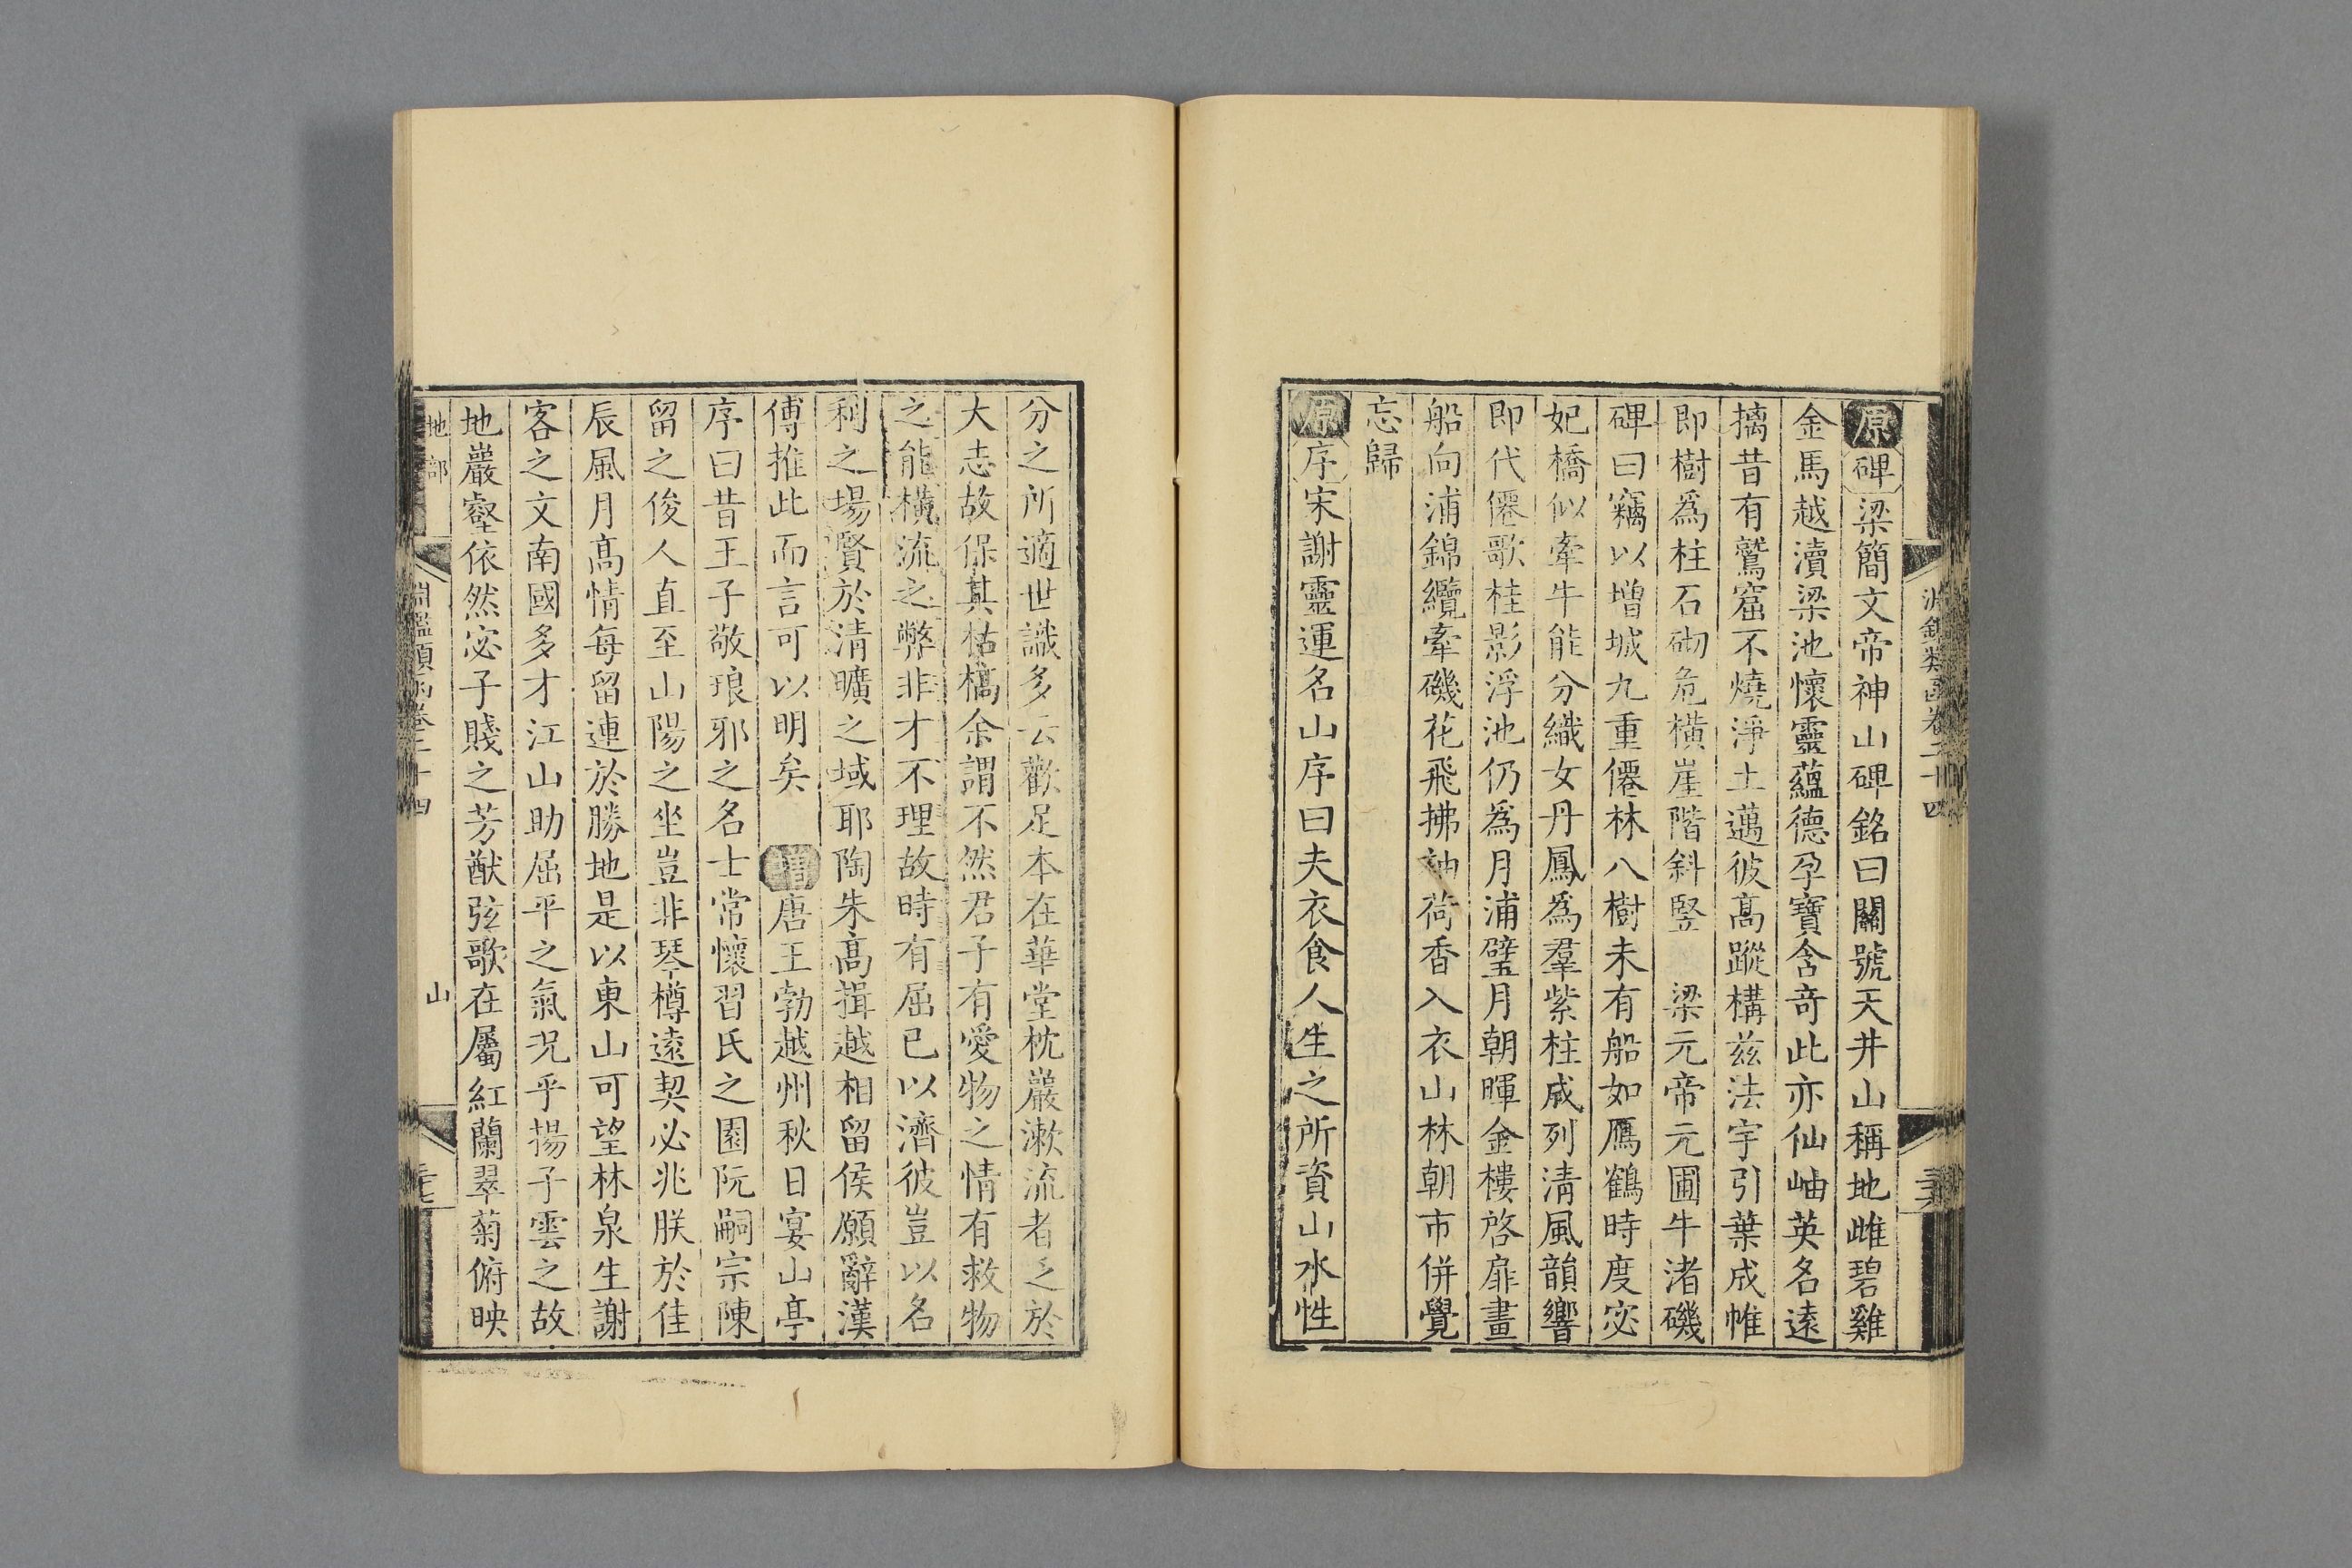 原碑梁簡文帝神山碑銘曰關號天井山稱地雌碧雞
金馬越瀆梁池懷靈蘊德孕寶含奇此亦仙岫英名遠
摛昔有鷲窟不燒淨土邁彼高蹤構茲法宇引葉成帷
即樹爲柱石砌危橫崖階斜竪　梁元帝元圃牛渚磯
碑曰竊以增城九重僊林八樹未有船如鴈鶴時度宓
妃橋似牽牛能分織女丹鳳爲羣紫柱成列清風韻響
即代僊歌桂影浮池仍爲月浦璧月朝暉金樓啓扉畫
船向浦錦纜牽磯花飛拂袖荷香入衣山林朝市併覺
忘歸
原序宋謝靈運名山序曰夫衣食人生之所資山水性
分之所適世識多云歡足本在華堂枕巖漱流者乏於
大志故保其枯槁余謂不然君子有愛物之情有救物
之能橫流之弊非才不理故時有屈已以濟彼豈以名
利之場賢於清曠之域耶陶朱高揖越相留侯願辭漢
傅推此而言可以明矣　增唐王勃越州秋日宴山亭
序曰昔王子敬琅邪之名士常懷習氏之園阮嗣宗陳
留之俊人直至山陽之坐豈非琴樽遠契必兆朕於佳
辰風月高情每留連於勝地是以東山可望林泉生謝
客之文南國多才江山助屈平之氣況乎揚子雲之故
地巖壑依然宓子賤之芳猷弦歌在屬紅蘭翠菊俯映
地部
淵鑑類函卷二十四
山